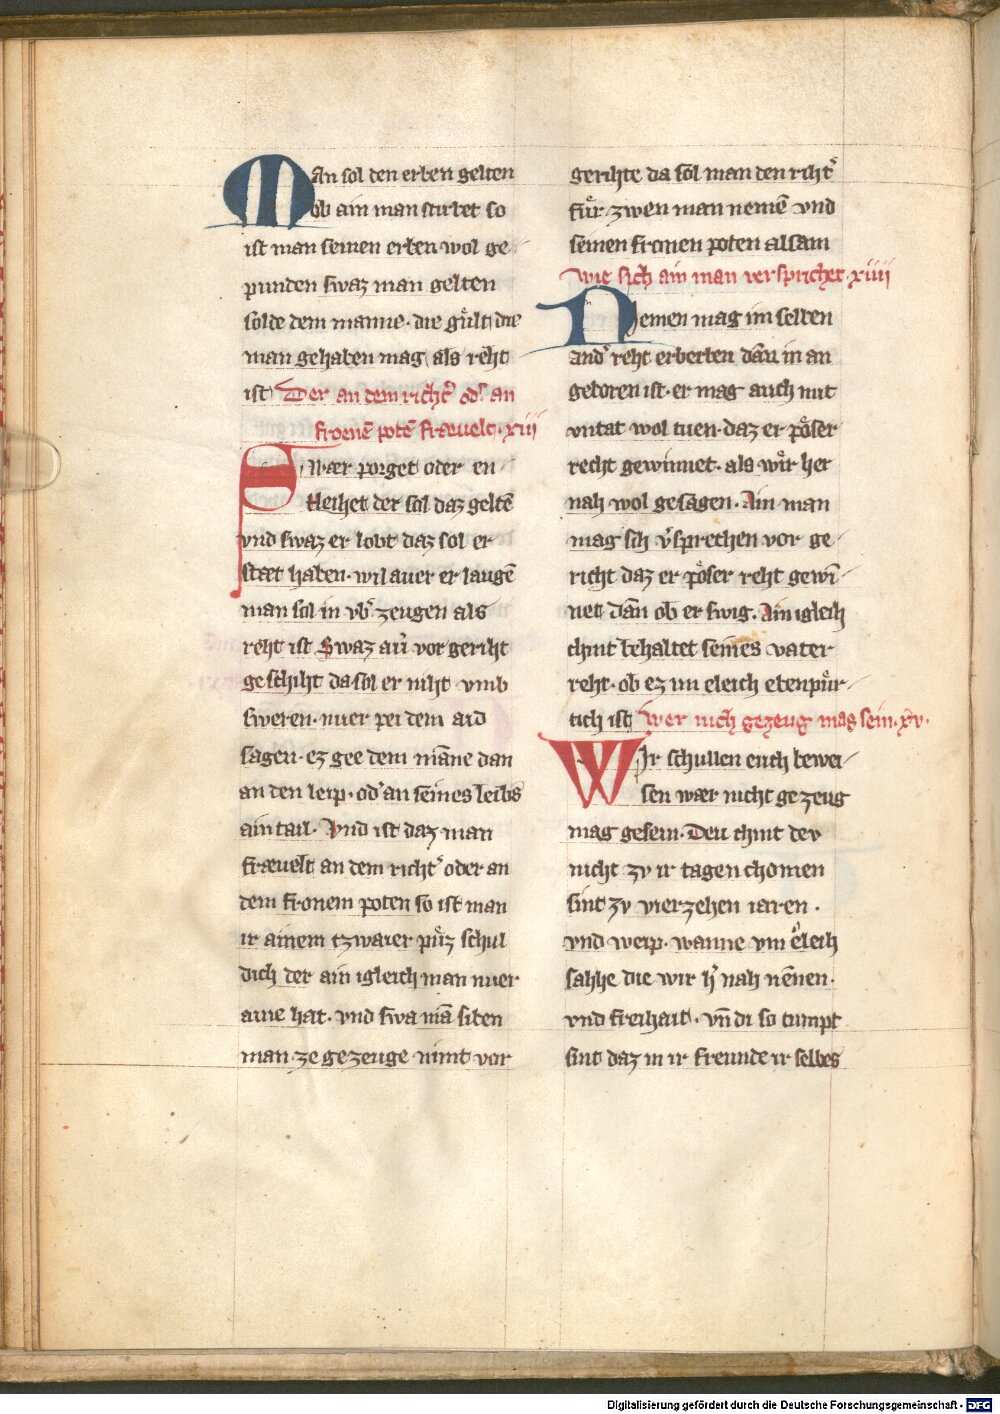 Man sol den erben gelten
ob ain man stirbet so
ist man seinen erben wol ge-
punden swaz man gelten
solde dem manne. die guͤlt die
man gehaben mag als reht
ist Der an dem richtˀ odˀ an
fronē potē frævelt. xiii
Swær porget oder en-
tleihet der sol daz geltē
vnd swaz er lobt daz sol er
stæt haben. wil auer er laugē
man sol in vbˀ zeugen als
reht ist Swaz auˀ vor geriht
geschiht da sol er niht vmb
sweren. nuer pei dem aid
sagen. ez gee dem māne dan
an den leip. odˀ an seines leibs
ain tail. Vnd ist daz man
frævelt an dem richtˀ oder an
dem fronem poten so ist man
ir ainem tzwaier puͤz schul
dich der ain igleich man nuer
aine hat. vnd swa mā siben
man ze gezeuge nimt vor
gerihte da sol man den rihtˀ
fuͤr zwen man nemē vnd
seinen fronen poten alsam
Wie sich ain man versprichet. xiiii
Niemen mag im selben
andˀ reht erberben dān in an
geboren ist. er mag auch mit
vntat wol tuen. daz er poͤser
recht gewinnet. als wir her
nah wol gesagen. Ain man
mag sich vˀsprechen vor ge-
richt daz er poͤser reht gewī-
net dān ob er swig. Ain igleich
chint behaltet seines vater
reht. ob ez im eleich ebenpuͤr-
tich ist Wer nich gezeug mag sein. xv.
Wir schullen euch bewei-
sen wær nicht gezeug
mag gesein. Deu chint dev
nicht zv ir tagen chomen
sint zv vierzehen iaren.
vnd weip. wanne vm eͤleich
sahhe die wir hˀ nah nēnen.
vnd freihait. vn̄ di so tumpt
sint daz in ir freunde ir selbes
Digitalisierung gefördert durch die Deutsche Forschungsgemeinschaft - DFG